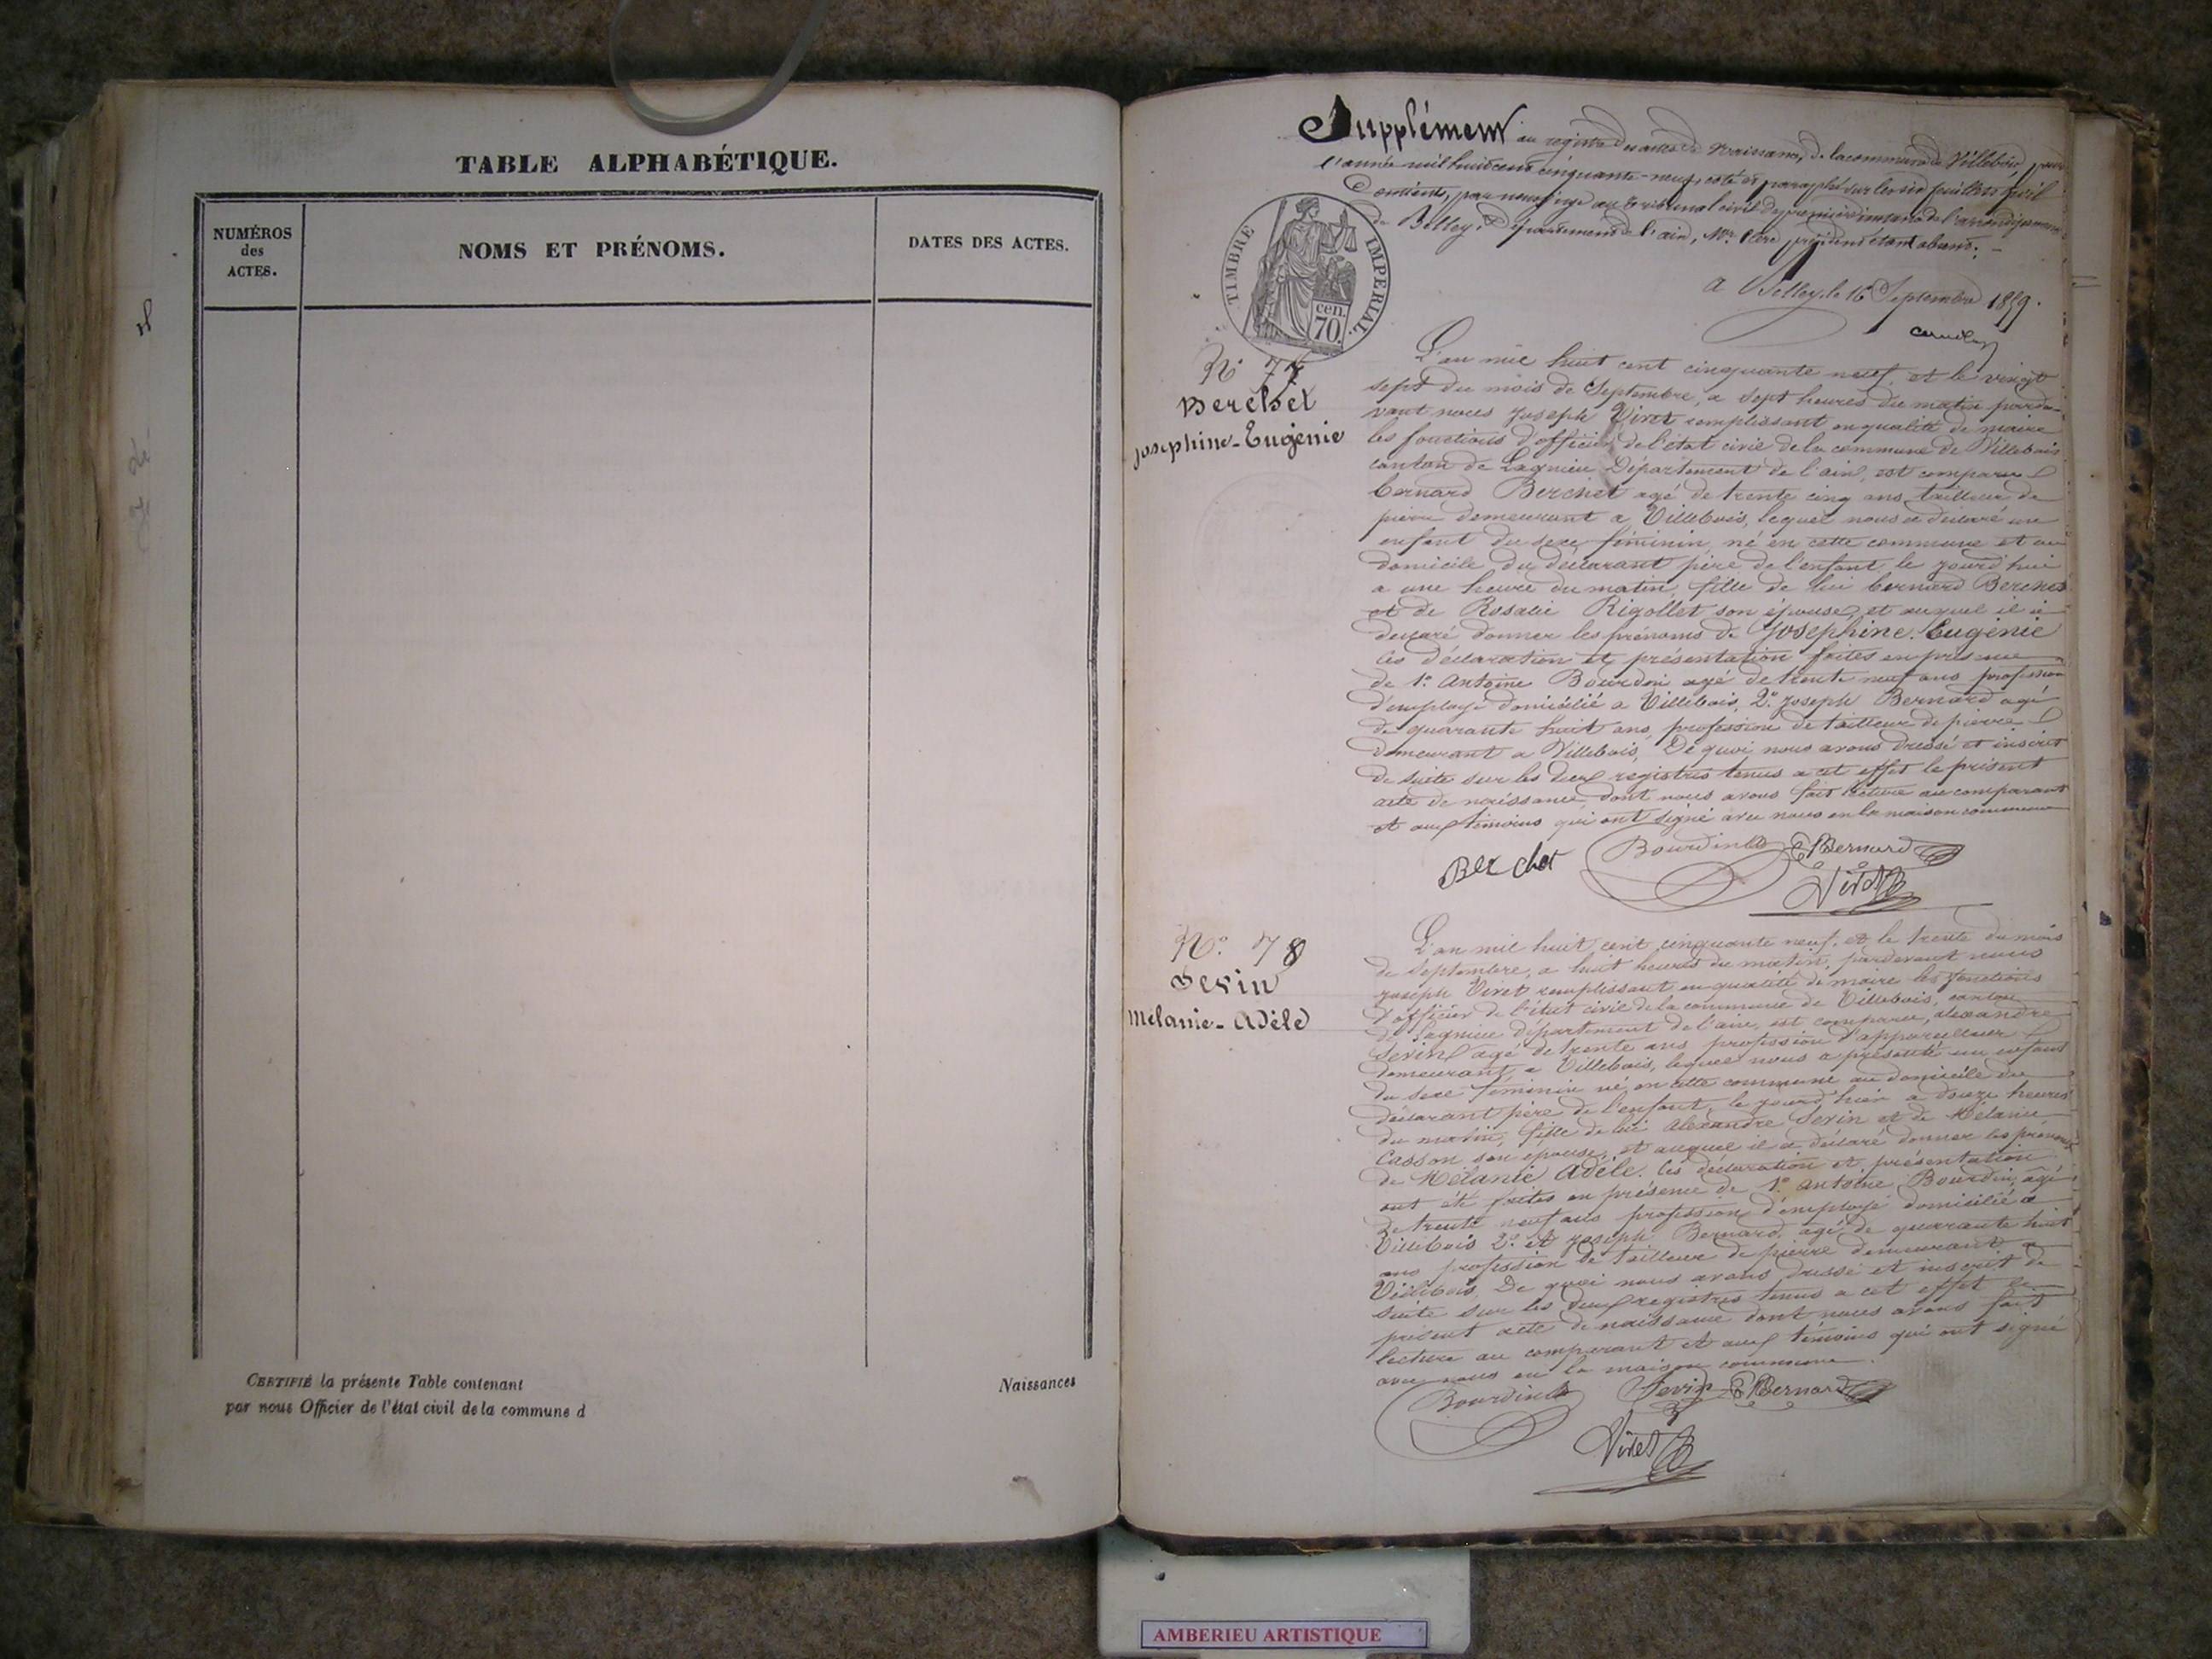 TABLE ALPHABÉTIQUE.
NUMÉROS
des
ACTES.
NOMS ET PRÉNOMS.
DATES DES ACTES.
CERTIFIÉ la présente Table contenant
Naissances
par nous Officier de l'état civil de la commune d
Supplément au registre des actes de naissance, de la commune de Villebois, pour
l'année mil huit cent cinquante-neuf, coté et paraphé sur les six feuillets qu'il
contient, par nous juge au tribunal civil de première instance de l'arrondissement
de Belley, Département de l'ain, Mr. président étant absent.
a Belley, le 16 Septembre 1859.
TIMBRE IMPERIAL.
cen.
70.
N° 77
Berchet
Josephine-Eugénie
L'an mil huit cent cinquante neuf, et le vingt
sept du mois de Septembre, a sept heures du matin parde-
vant nous Joseph Viret remplissant en qualité de maire
les fonctions d'officier de l'état civil de la commune de Villebois
canton de Lagnieu Département de l'ain, est comparu
bernard Berchet agé de trente cinq ans tailleur de
pierre demeurant a Villebois, lequel nous a déclaré un
enfant du sexe féminin, né en cette commune et au
domicile du déclarant père de l'enfant le jourd'hui
a une heure du matin, fille de lui bernard Berchet
et de Rosalie Rigollet son épouse, et auquel il a
déclaré donner les prénoms de Josephine. Eugénie
Ces déclaration et présentation faites en présence
de 1° Antoine Bourdin agé de trente neuf ans profession
d'employé domicilié a Villebois, 2° Joseph Bernard agé
de quarante huit ans, profession de tailleur de pierre
demeurant a Villebois, De quoi nous avons dressé et inscrit
de suite sur les deux registres tenus a cet effet le présent
acte de naissance dont nous avons fait lecture au comparant
et aux témoins qui ont signé avec nous en la maison commune
Berchet Bourdin Bernard
Viret
N° 78
Sevin
Mélanie-Adèle
L'an mil huit cent cinquante neuf, et le trente du mois
de Septembre, a huit heures du matin, pardevant nous
Joseph Viret remplissant en qualité de maire les fonctions
d'officier de l'état civil de la commune de Villebois, canton
de Lagnieu département de l'ain, est comparu, alexandre
Sevin agé de trente ans profession d'appareilleur
demeurant a Villebois, lequel nous a présenté un enfant
du sexe féminin né, en cette commune au domicile du
déclarant père de l'enfant, le jourd'hier a douze heures
du matin, fille de lui Alexandre Sevin et de Mélanie
Casson son épouse, et auquel il a déclaré donner les prénoms
de Mélanie Adèle. Ces déclaration et présentation
ont été faites en présence de 1° antoine Bourdin, âgé
de trente neuf ans profession d'employé domicilié a
Villebois 2° et Joseph Bernard, agé de quarante huit
ans profession de tailleur de pierre demeurant a
Villebois. De quoi nous avons dressé et inscrit de
suite sur les deux registres tenus a cet effet le
présent acte de naissance dont nous avons fait
lecture au comparant et aux témoins qui ont signé
avec nous en la maison commune.
Bourdin Sevin Bernard
Viret
AMBERIEU ARTISTIQUE